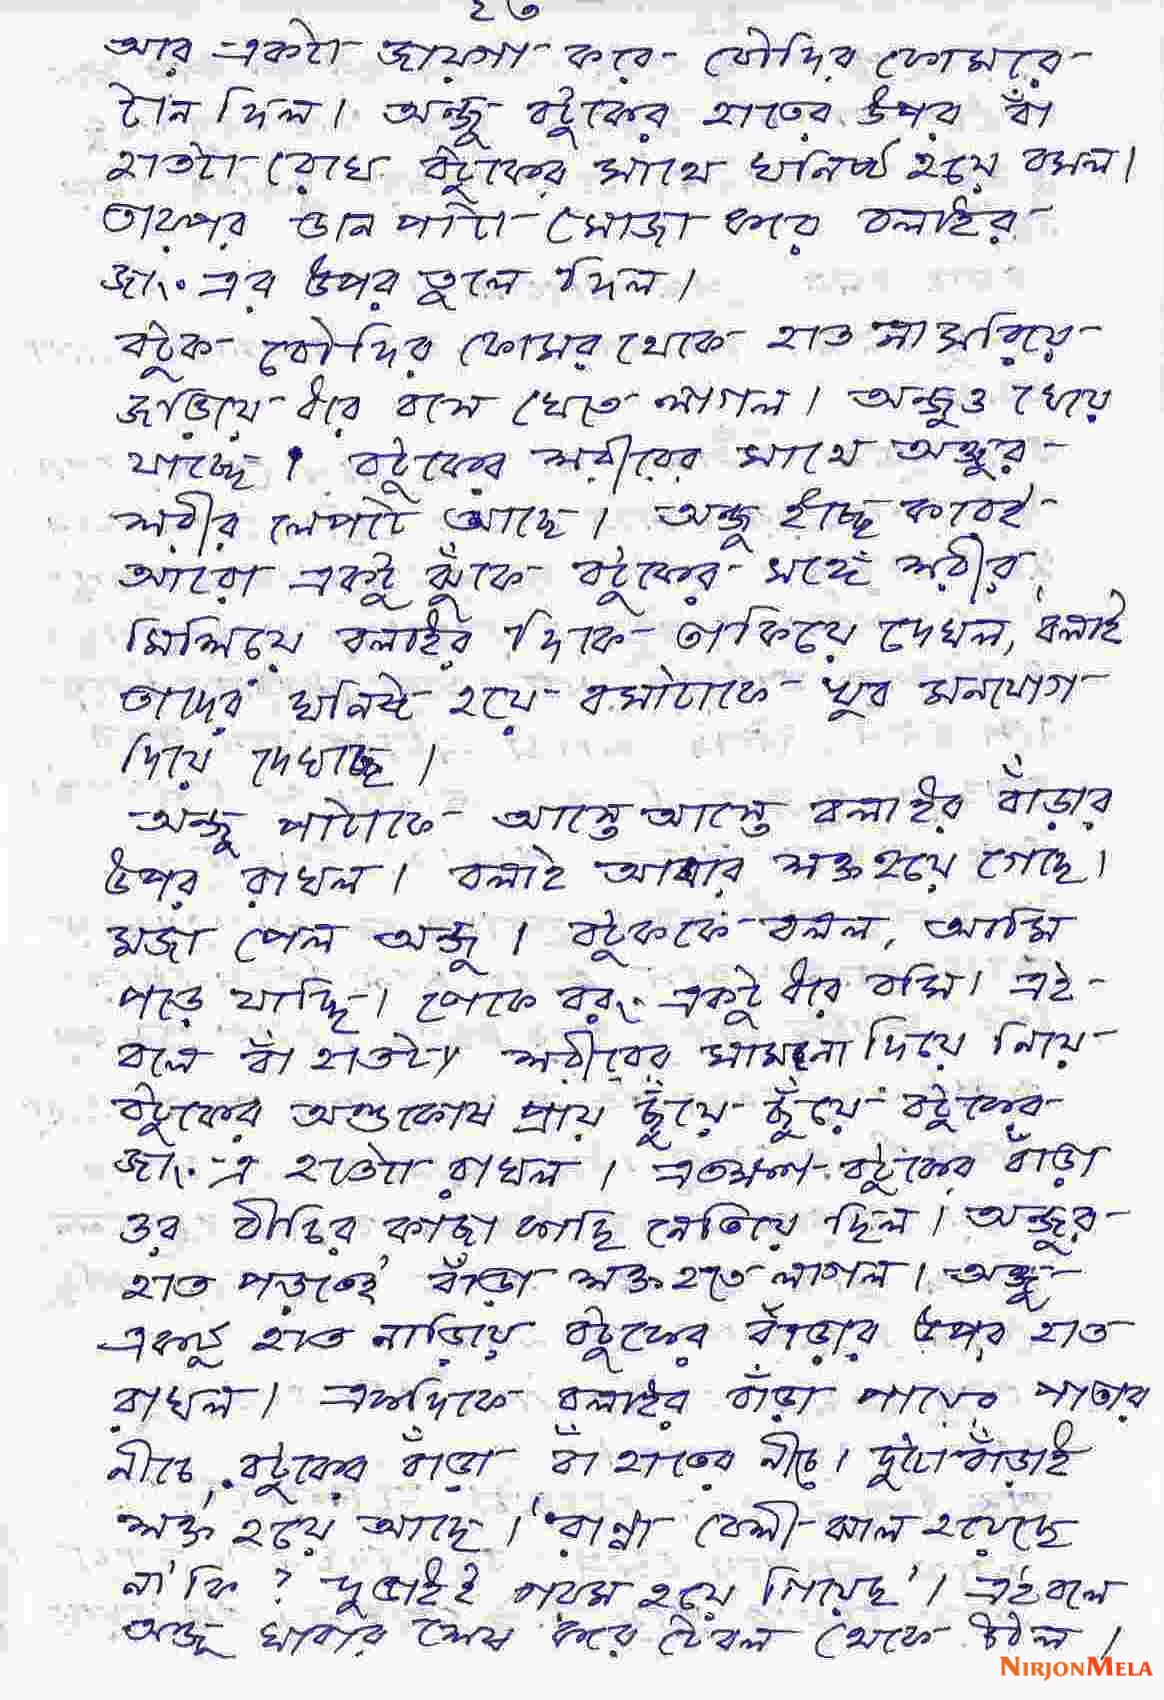 ২৩
আর একটা জায়গা করে বৌদির কোমরে
টান দিল। অঞ্জু বটুকের হাতের উপর বাঁ
হাতটা রেখে বটুকের সাথে ঘনিষ্ঠ হয়ে বসল।
তারপর ডান পাটা সোজা করে বলাইর
জাং এর উপর তুলে দিল।
বটুক বৌদির কোমর থেকে হাত না সরিয়ে
জড়িয়ে ধরে বসে খেতে লাগল। অঞ্জুও খেয়ে
যাচ্ছে। বটুকের শরীরের সাথে অঞ্জুর
শরীর লেপটে আছে। অঞ্জু ইচ্ছে করেই
আরো একটু ঝুঁকে বটুকের সঙ্গে শরীর
মিশিয়ে বলাইর দিকে তাকিয়ে দেখল, বলাই
তাদের ঘনিষ্ট হয়ে বসাটাকে খুব মনযোগ
দিয়ে দেখছে।
অঞ্জু পাটাকে আস্তে আস্তে বলাইর বাঁড়ার
উপর রাখল। বলাই আবার শক্ত হয়ে গেছে।
মজা পেল অঞ্জু। বটুককে বলল, আমি
পড়ে যাচ্ছি। তোকে বরং একটু ধরে বসি। এই
বলে বাঁ হাতটা শরীরের সামনে দিয়ে নিয়ে
বটুকের অণ্ডকোষ প্রায় ছুঁয়ে ছুঁয়ে বটুকের
জাং-এ হাতটা রাখল। এতক্ষণ বটুকের বাঁড়া
ওর বীচির কাছা কাছি নেতিয়ে ছিল। অঞ্জুর
হাত পড়তেই বাঁড়া শক্ত হতে লাগল। অঞ্জু
একটু হাত নাড়িয়ে বটুকের বাঁড়ার উপর হাত
রাখল। একদিকে বলাইর বাঁড়া পায়ের পাতার
নীচে, বটুকের বাঁড়া বাঁ হাতের নীচে। দুটো বাঁড়াই
শক্ত হয়ে আছে। 'রান্না বেশী ঝাল হয়েছে
না কি? দুভাইই গরম হয়ে গিয়েছ'। এই বলে
অঞ্জু খাবার শেষ করে টেবল থেকে উঠল।
NIRJONMELA